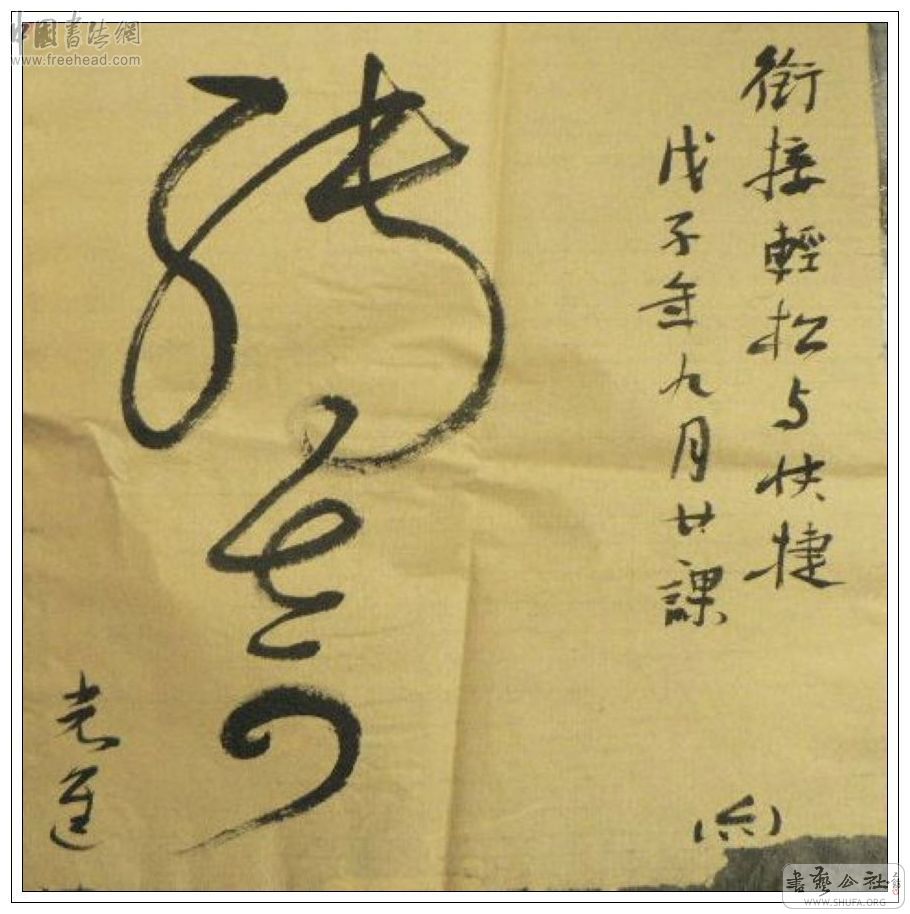 中國書法網
www.freehead.com
銜接輕松与快捷
戊子年九月廿課
(六)
書藝公社
WWW.SHUFA.ORG